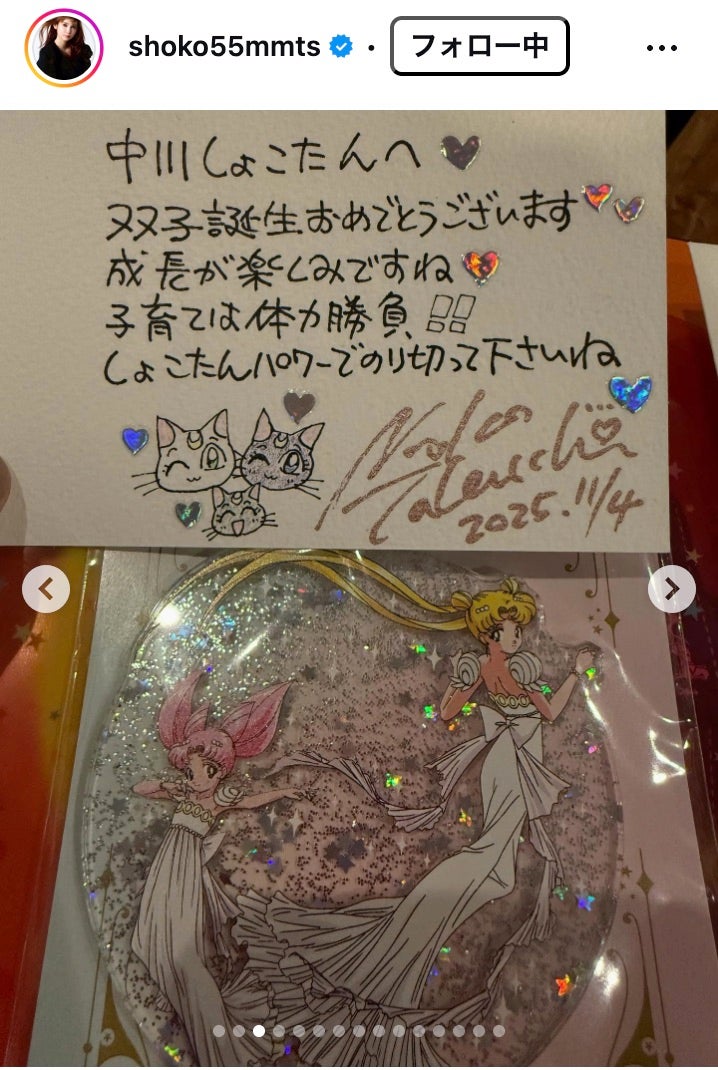 shoko55mmts
フォロー中
中川しょこたんへ
双子誕生おめでとうございます
成長が楽しみですね
子育ては体力勝負!!
しょこたんパワーでのり切って下さいね
Naoko
Takeuchi
2025.11/4